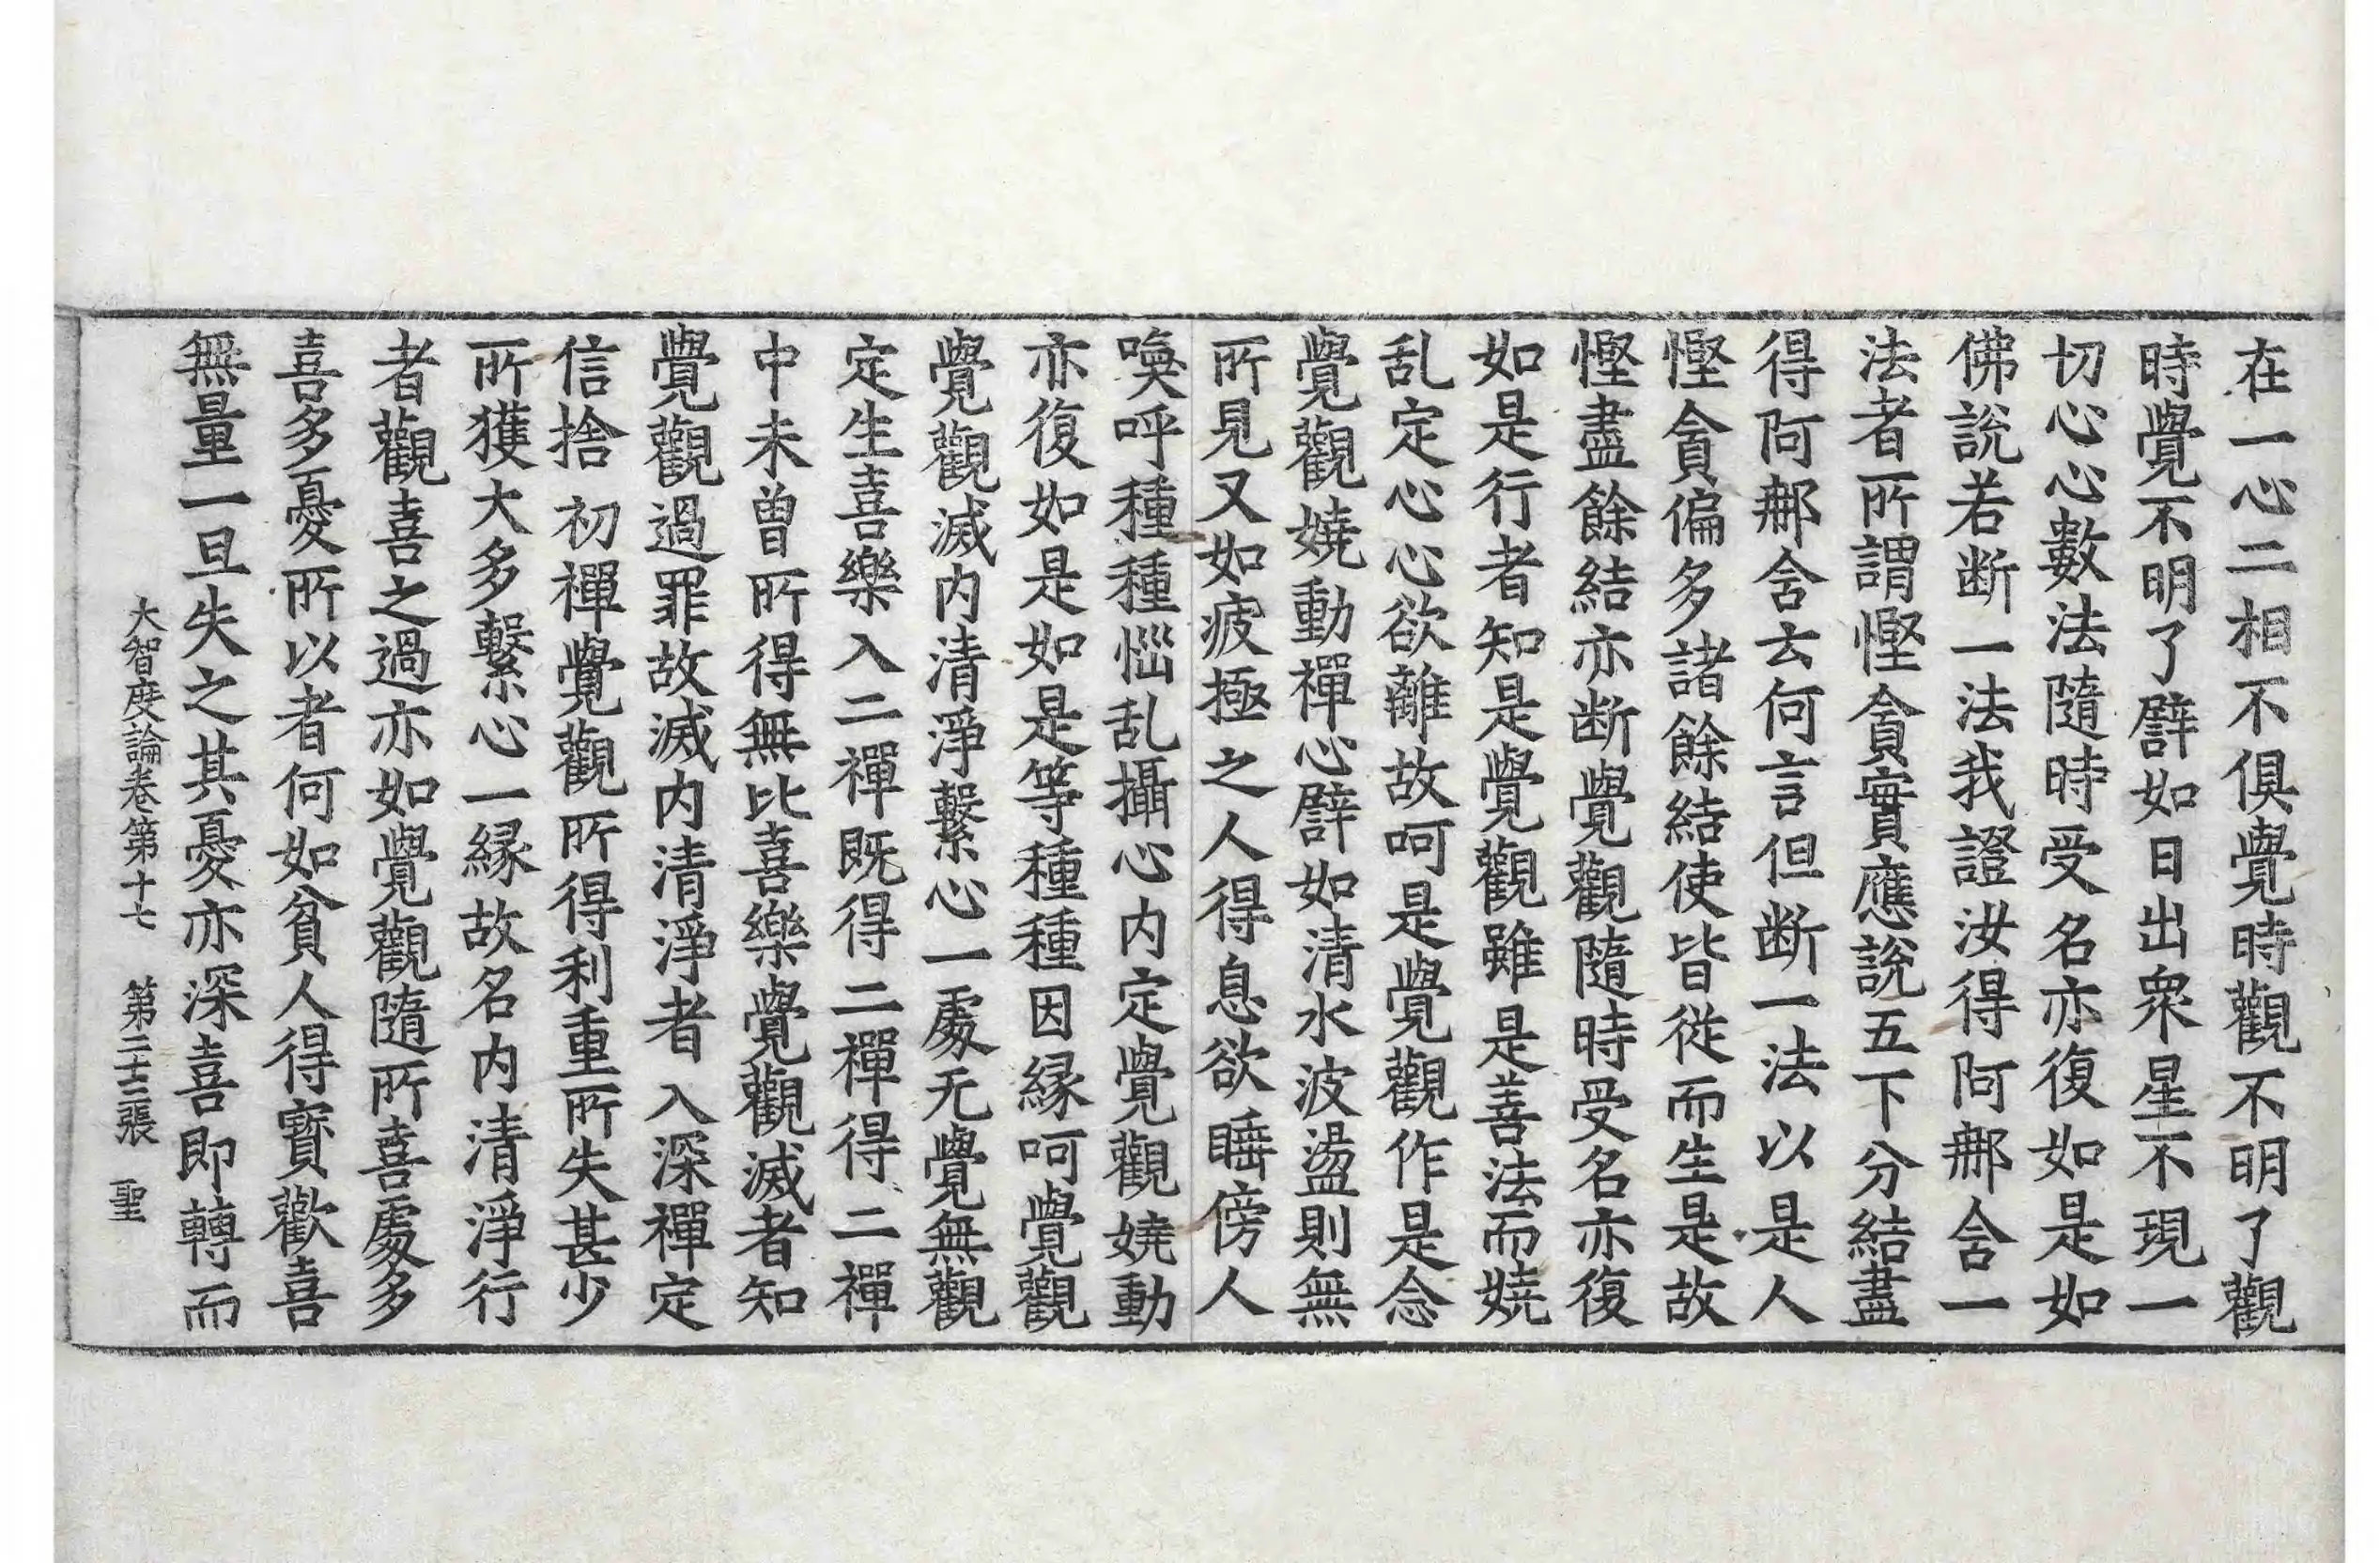 在一心二相不俱覺時觀不明了觀
時覺不明了譬如日出衆星不現一
切心心數法隨時受名亦復如是如
佛說若断一法我證汝得阿那含一
法者所謂慳貪實應說五下分結盡
得阿那含云何言但断一法以是人
慳貪偏多諸餘結使皆從而生是故
慳盡餘結亦断覺觀隨時受名亦復
如是行者知是覺觀雖是善法而嬈
乱定心心欲離故呵是覺觀作是念
覺觀嬈動禪心譬如清水波盪則無
所見又如疲極之人得息欲睡傍人
喚呼種種惱乱攝心内定覺觀嬈動
亦復如是如是等種種因縁呵覺觀
覺觀滅内清淨繫心一處无覺無觀
定生喜樂入二禪既得二禪得二禪
中未曾所得無比喜樂覺觀滅者知
覺觀過罪故滅内清淨者入深禪定
信捨初禪覺觀所得利重所失甚少
所獲大多繫心一縁故名内清淨行
者觀喜之過亦如覺觀隨所喜處多
喜多憂所以者何如貧人得寶歡喜
無量一旦失之其憂亦深喜即轉而
大智度論卷第十七 第二十三張 聖